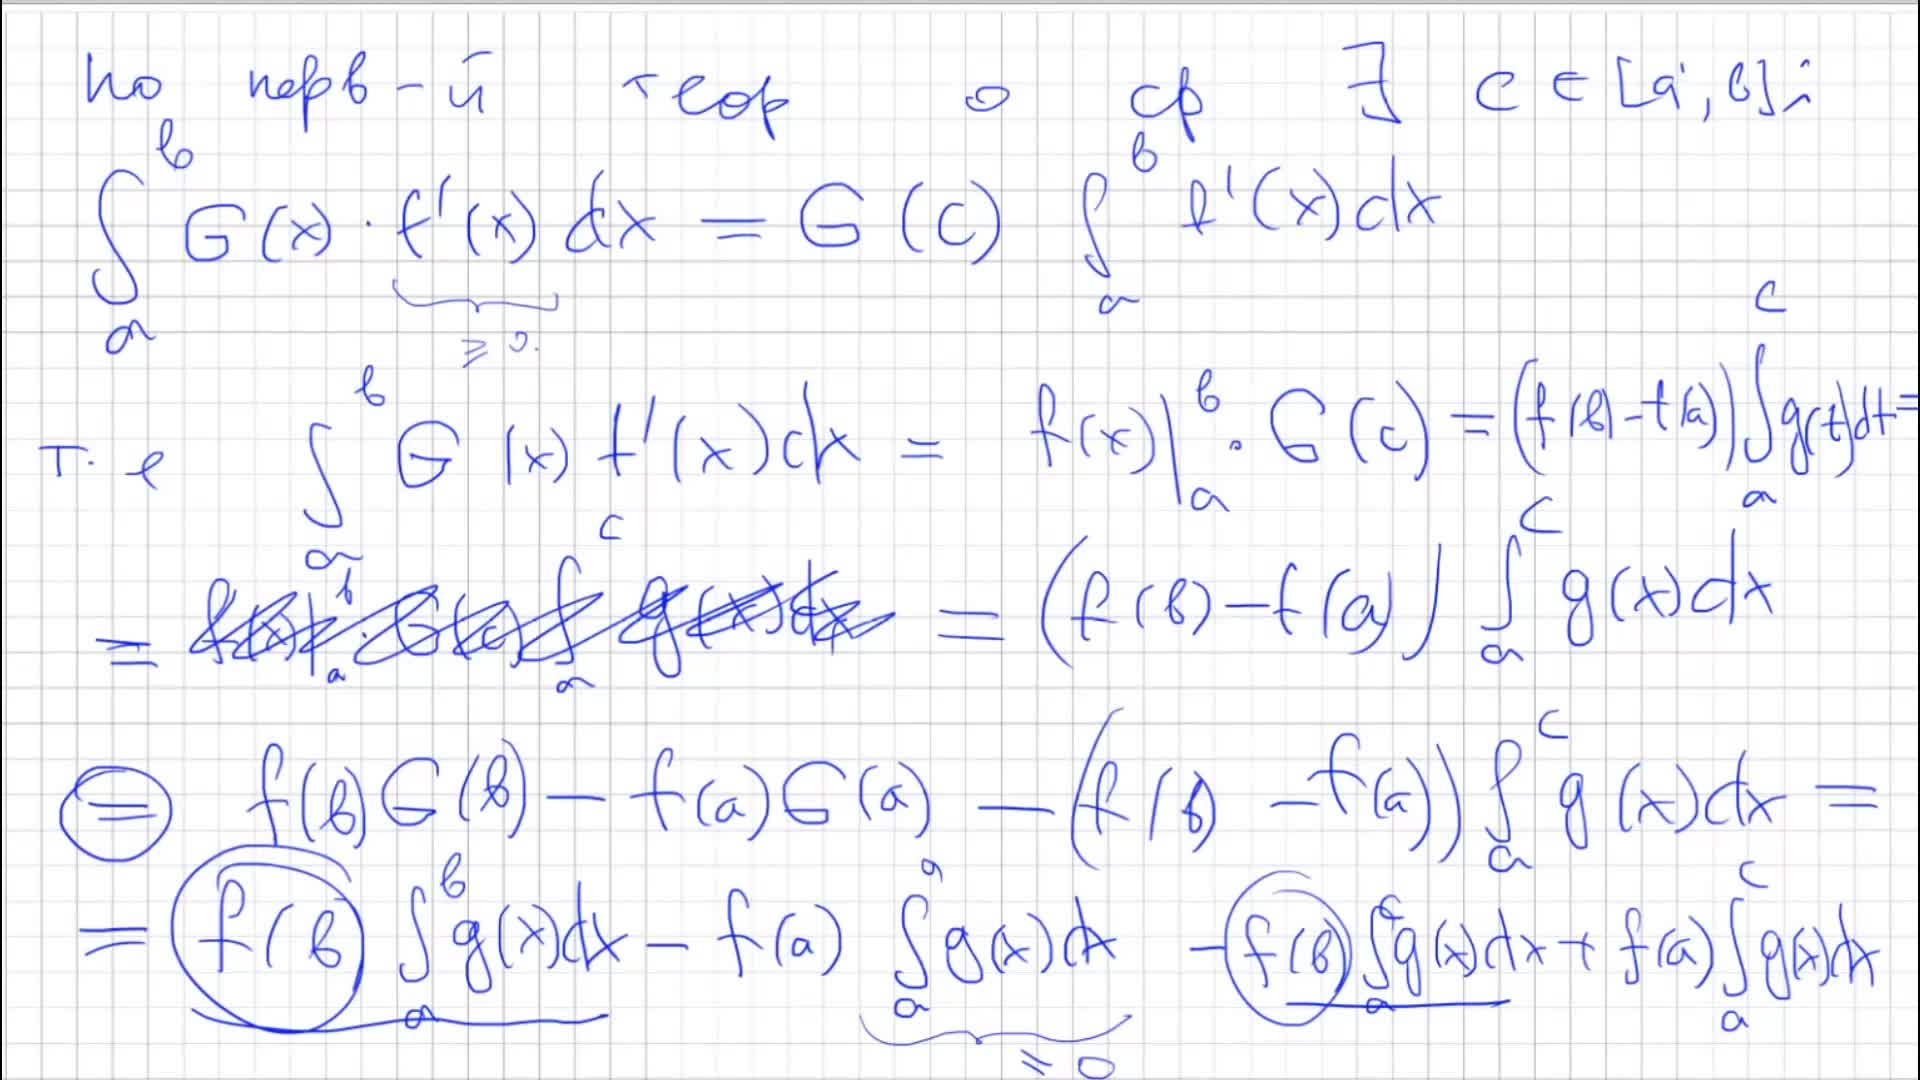 по перв-й теор о ср ∃ c ∈ [a, b]:
∫_a^b G(x) · f'(x) dx = G(c) ∫_a^b f'(x) dx
≥ 0.
т. е ∫_a^b G(x) f'(x) dx = f(x)|_a^b · G(c) = (f(b) - f(a)) ∫_a^c g(t) dt =
= (f(b) - f(a)) ∫_a^c g(x) dx
= f(b) G(b) - f(a) G(a) - (f(b) - f(a)) ∫_a^c g(x) dx =
= f(b) ∫_a^b g(x) dx - f(a) ∫_a^a g(x) dx - f(b) ∫_a^c g(x) dx + f(a) ∫_a^c g(x) dx
= 0